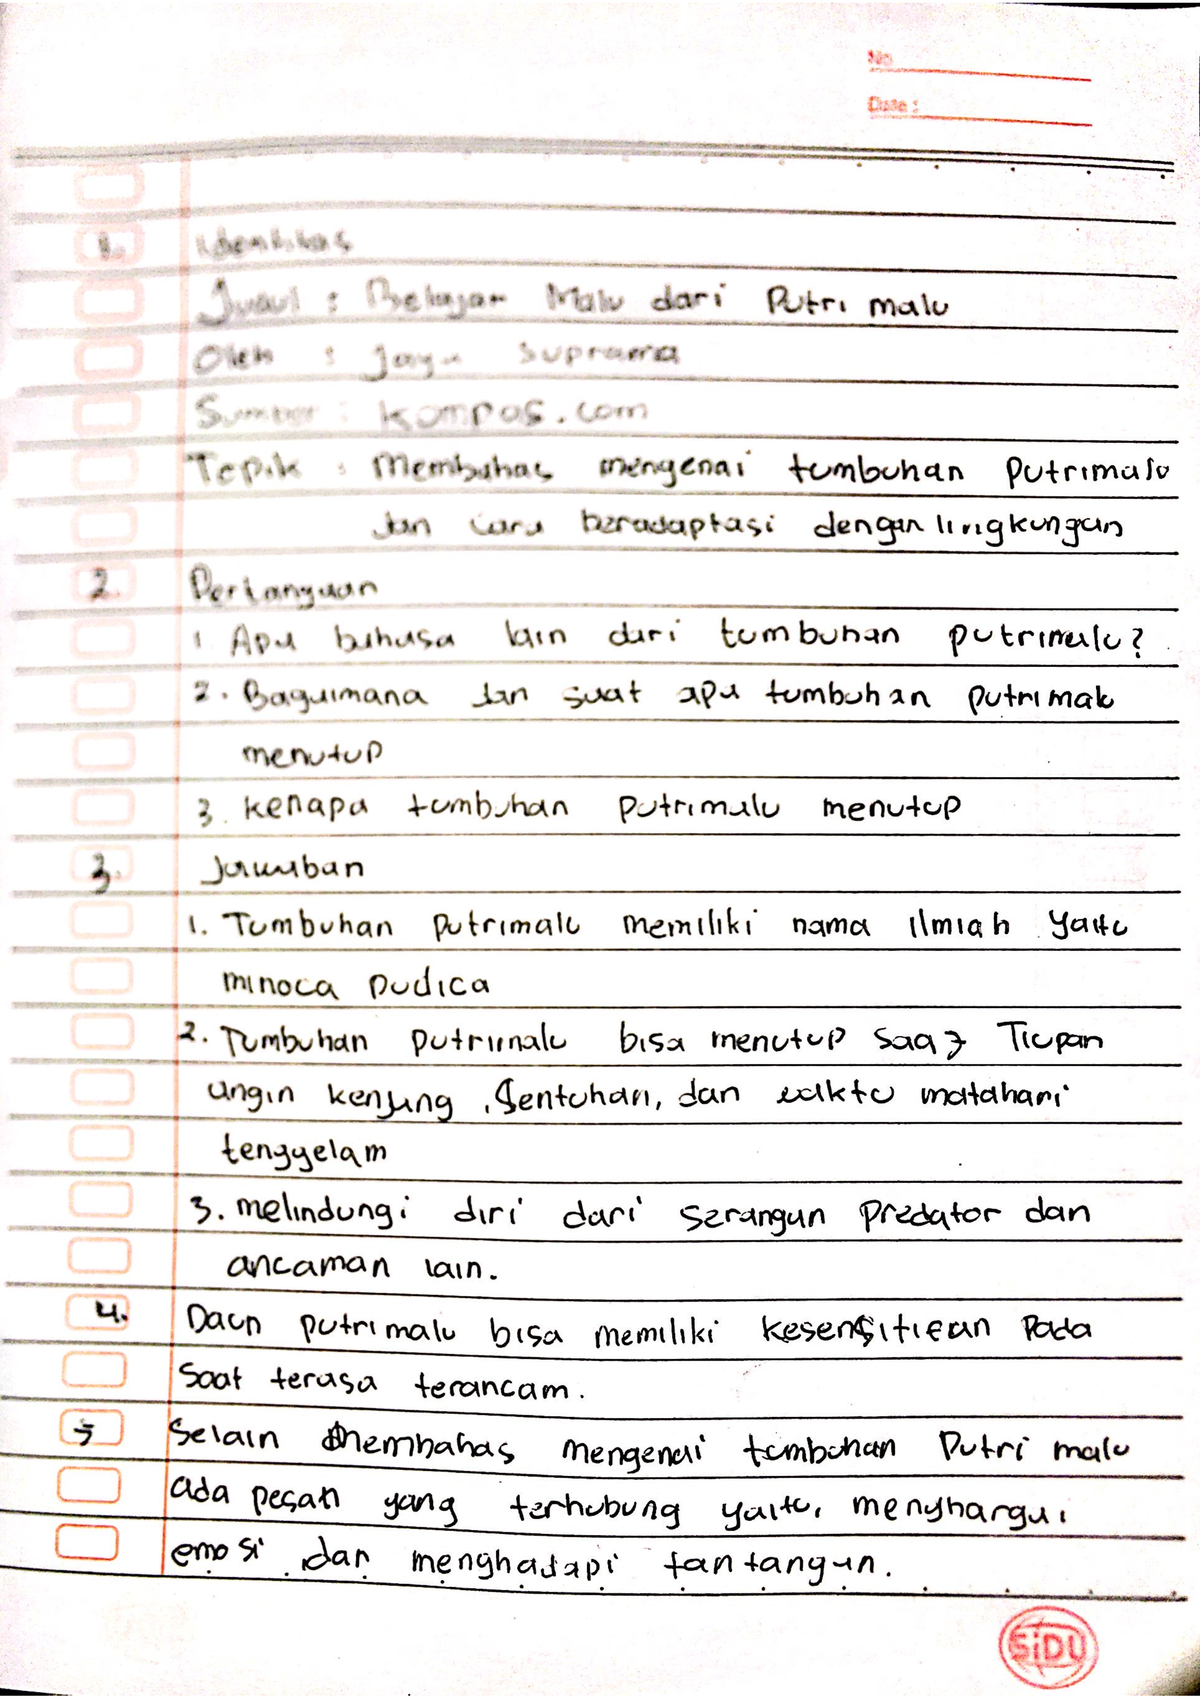 No
Date :
1. Identitas
Judul : Belajar Malu dari Putri malu
Oleh : Jaya Suprana
Sumber : kompas.com
Topik : Membahas mengenai tumbuhan putrimalu
dan cara beradaptasi dengan lingkungan
2. Pertanyaan
1. Apa bahasa lain dari tumbuhan putrimalu?
2. Bagaimana dan saat apa tumbuhan putrimalu
menutup
3. kenapa tumbuhan putrimalu menutup
3. Jawaban
1. Tumbuhan putrimalu memiliki nama ilmiah yaitu
minoca pudica
2. Tumbuhan putrimalu bisa menutup saat Tiupan
angin kenjang, Sentuhan, dan waktu matahari
tenggelam
3. melindungi diri dari serangan predator dan
ancaman lain.
4. Daun putrimalu bisa memiliki kesensitifan pada
saat terasa terancam.
5 Selain membahas mengenai tumbuhan Putri malu
ada pesan yang terhubung yaitu, menghargai
emosi dan menghadapi tantangan.
SiDU